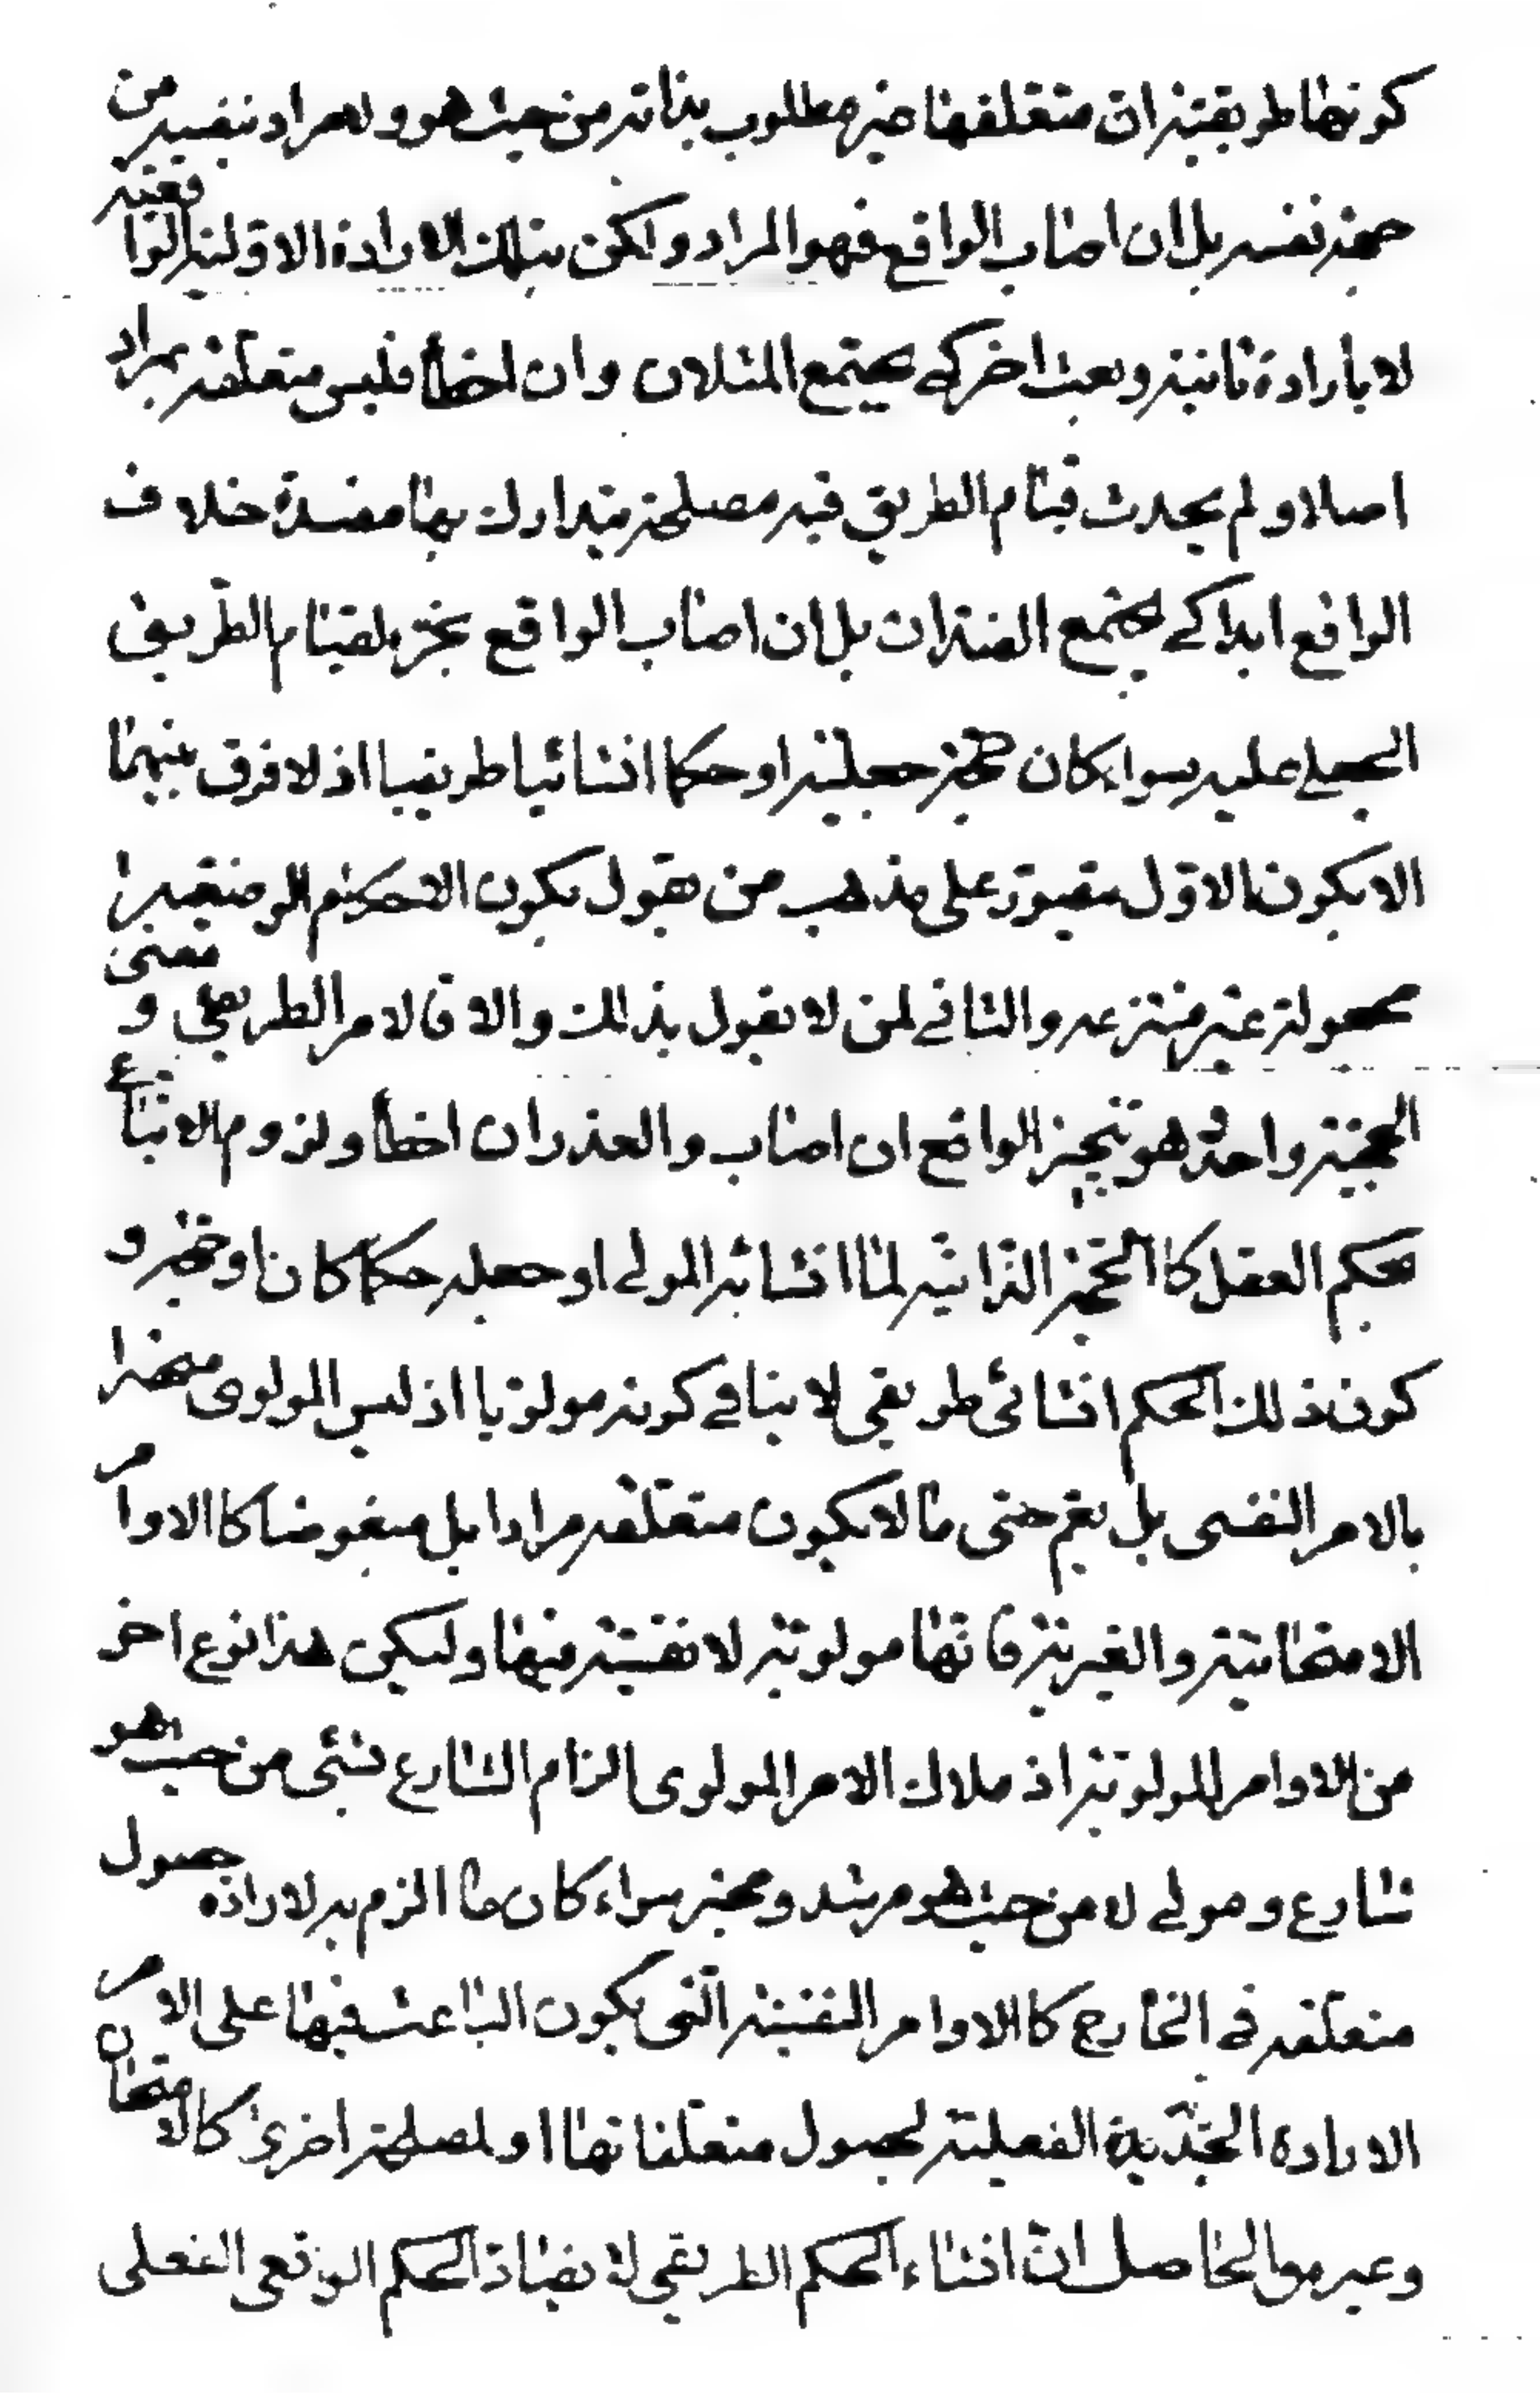 كونها طريقية ان متعلقها غير مطلوب بذاته من حيث هو ولا مراد بنفسه من
جهة نفسه بل ان اصاب الواقع فهو المراد ولكن بتلك الارادة الاولية الواقعية
لا بارادة ثانية وبعث اخر كي يجتمع المثلان وان اخطأ فليس متعلقه بمراد
اصلا ولم يحدث قيام الطريق فيه مصلحة يتدارك بها مفسدة خلاف
الواقع ابدا كي يجتمع الضدان بل ان اصاب الواقع تنجز بقيام الطريق
الجعلي عليه سواء كان حجة جعلية او حكما انشائيا طريقيا اذ لا فرق بينهما
الا بكون الاول متصور على مذهب من يقول بكون الاحكام الوضعية
مجعولة غير منتزعة والثاني لمن لا يقول بذلك والا فالامر الطريقي ومعنى
الحجية واحد وهو تنجز الواقع ان اصاب والعذر ان اخطأ ولزوم الاتباع
بحكم العقل كالحجة الذاتية لما انشائه المولى او جعله حكما كان او حجة و
كون ذلك الحكم انشائى طريقي لا ينافي كونه مولويا اذ ليس المولوى منحصرا
بالامر النفسى بل يعم حتى ما لا يكون متعلقه مرادا بل مبغوضا كالاوامر
الامتحانية والغيرية فانها مولوية لا نفسية فيها وليكن هذا نوع اخر
من الاوامر المولوية اذ ملاك الامر المولوى الزام الشارع بشئ من حيث هو
شارع ومولى لا من حيث هو مرشد ومخبر سواء كان ما الزم به لارادة حصول
متعلقه في الخارج كالاوامر النفسية التى يكون الباعث فيها على الامر
الارادة الجدية الفعلية لحصول متعلقاتها او لمصلحة اخرى كالامتحان
وغيره والحاصل ان انشاء الحكم الطريقي لا يضاد الحكم الواقعى الفعلى